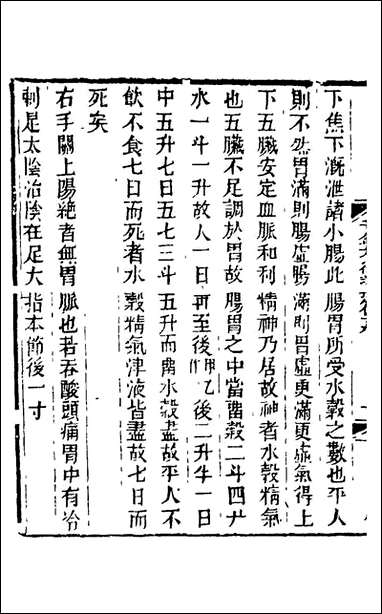 下焦下溉泄諸小腸此腸胃所受水穀之數也平人
則不然胃滿則腸虛腸滿則胃虛更滿更虛氣得上
下五臟安定血脈和利精神乃居故神者水穀精氣
也五臟不足調於胃故腸胃之中當留穀二斗四升
水一斗一升故人一日再至後後二升半一日
中五升七日五七三斗五升而留水穀盡故平人不
飲不食七日而死者水穀精氣津液皆盡故七日而
死矣
右手關上陽絕者無胃脈也若吞酸頭痛胃中有冷
刺足太陰治陰在足大指本節後一寸